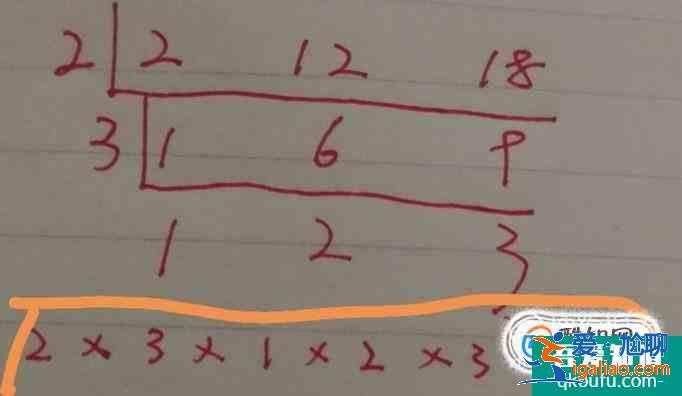 2 2 12 18
3 1 6 9
1 2 3
2 × 3 × 1 × 2 × 3
爱尬聊
igaliao.com
qkoufu.com